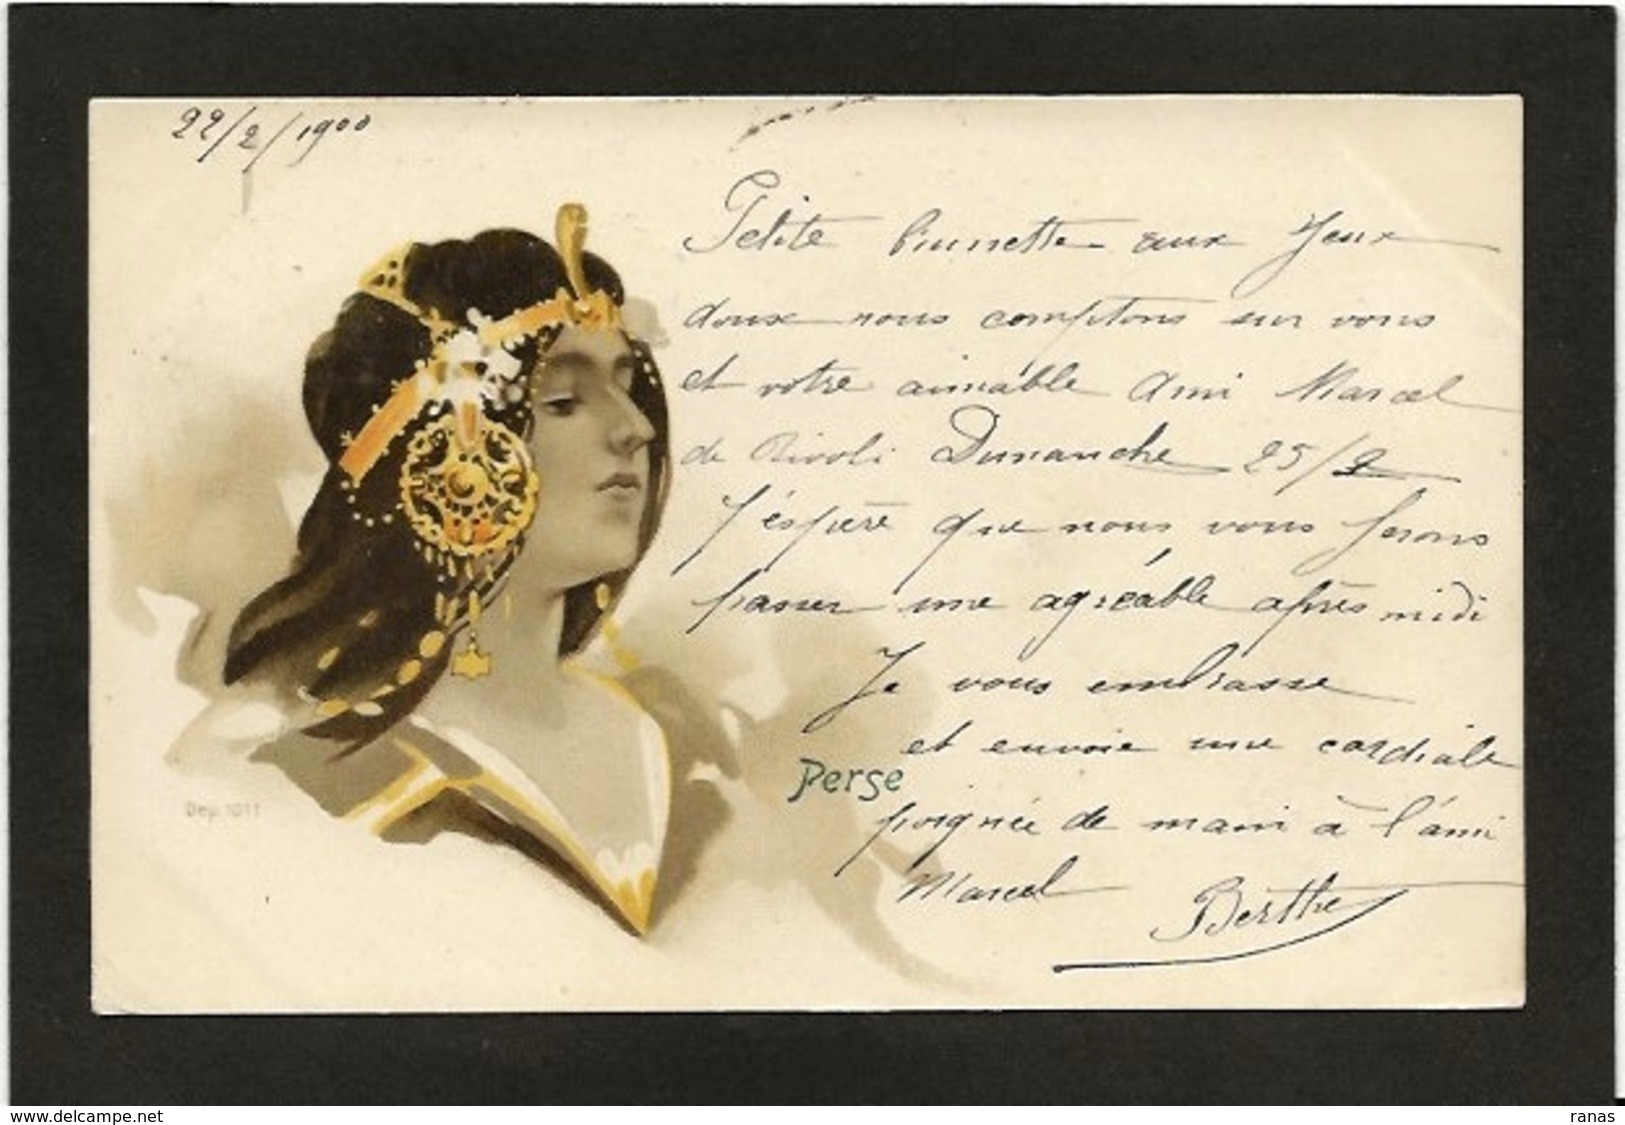 22/2/1900
Petite brunette aux yeux
doux nous comptons sur vous
et votre aimable Ami Marcel
de Rivoli Dimanche 25/2
J'éspère que nous vous ferons
passer une agréable après midi
Je vous embrasse
et envoie une cordiale
poignée de main à l'ami
Marcel Berthe
Perse
Dep. 1011
www.delcampe.net
ranas